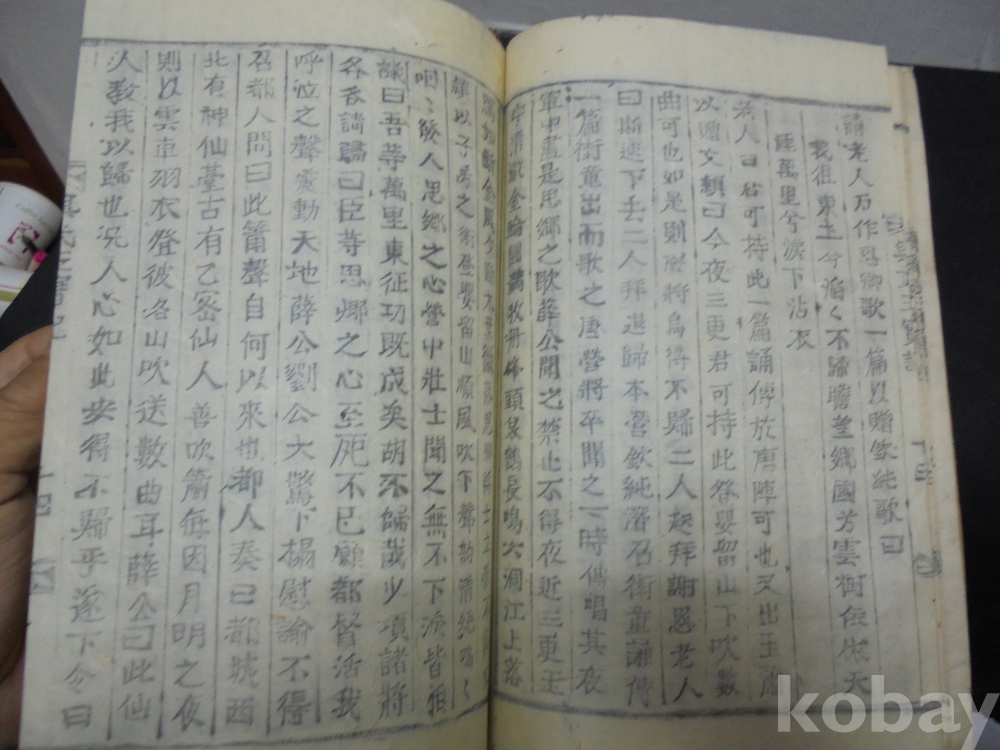 請老人乃作思鄕歌一篇以贈欽純歌曰
我徂東土兮滔〻不歸瞻望鄕國芳雲樹依依天
涯萬里兮淚下沾衣
老人曰君可持此一篇誦傳於唐陣可也又出玉簫
以贈文穎曰今夜三更君可持此登婴留山下吹數
曲可也如是則唐將烏得不歸二人起拜謝恩老人
曰斯速下去二人拜退歸本營欽純潛召街童誦傳
一篇街童出而歌之唐營將卒聞之一時傳唱其夜
軍中盡是思鄕之歌薛公聞之禁止不得夜近三更玉
宇淸 牧丹峰頭 長鳴大洞江上
山順風吹下聲韵淸絶嗚〻
咽〻餘人思鄕之心營中壯士聞之無不下淚皆相
議曰吾等萬里東征功旣成矣胡不歸哉少項諸將
各吾請歸曰臣等思鄕之心至死不已願都督活我
呼泣之聲震動天地薛公劉公大驚下榻慰諭不得
召都人問曰此簫聲自何以來也都人奏曰都城西
北有神仙臺古有乙密仙人善吹簫每因月明之夜
則以雲車羽衣登彼名山吹送數曲耳薛公曰此仙
人敎我以歸也况人心如此安得不歸乎遂下令曰
十四
kobay